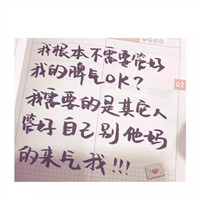 我根本不需要管好
我的脾气OK?
我需要的是其它人
管好自己别他妈
的来气我!!!
02